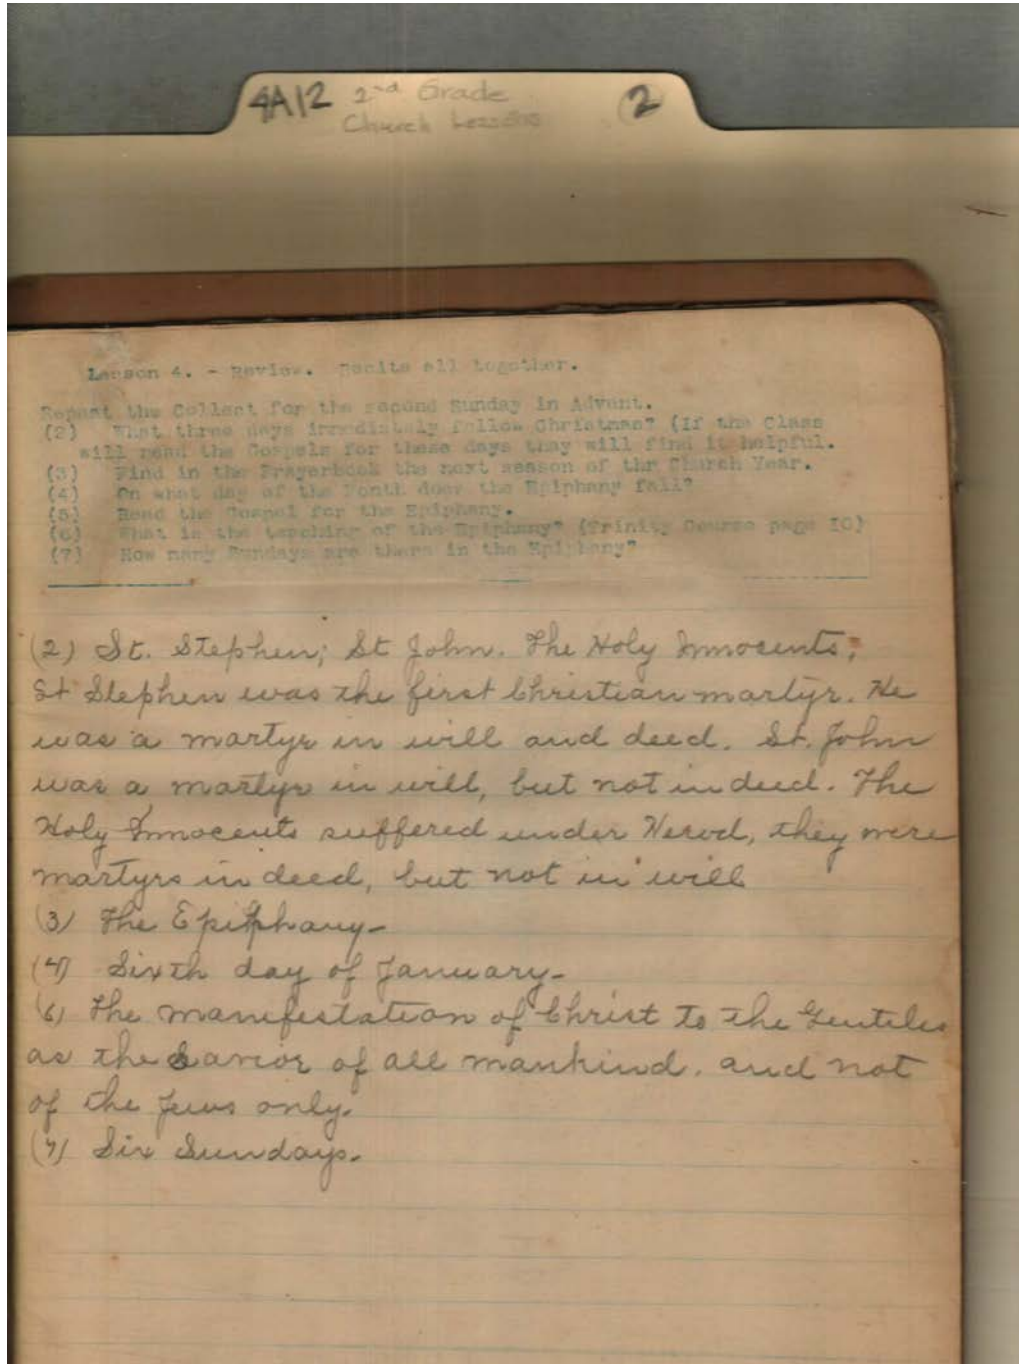 4A12 2nd Grade 2
Church Lessons
Lesson 4. - Review. Recite all together.
Repeat the Collect for the second Sunday in Advent.
(2) What three days immediately follow Christmas? (If the Class
will read the Gospels for these days they will find it helpful.
(3) Find in the Prayerbook the next season of the Church Year.
(4) On what day of the Month does the Epiphany fall?
(5) Read the Gospel for the Epiphany.
(6) What is the teaching of the Epiphany? (Trinity Course page 10)
(7) How many Sundays are there in the Epiphany?
(2) St. Stephen; St John. The Holy Innocents;
St Stephen was the first Christian martyr. He
was a martyr in will and deed. St. John
was a martyr in will, but not in deed. The
Holy Innocents suffered under Herod, they were
martyrs in deed, but not in will
(3) The Epiphany-
(4) Sixth day of January-
(6) The manifestation of Christ to the Gentiles
as the Savior of all mankind. and not
of the Jews only.
(7) Six Sundays-